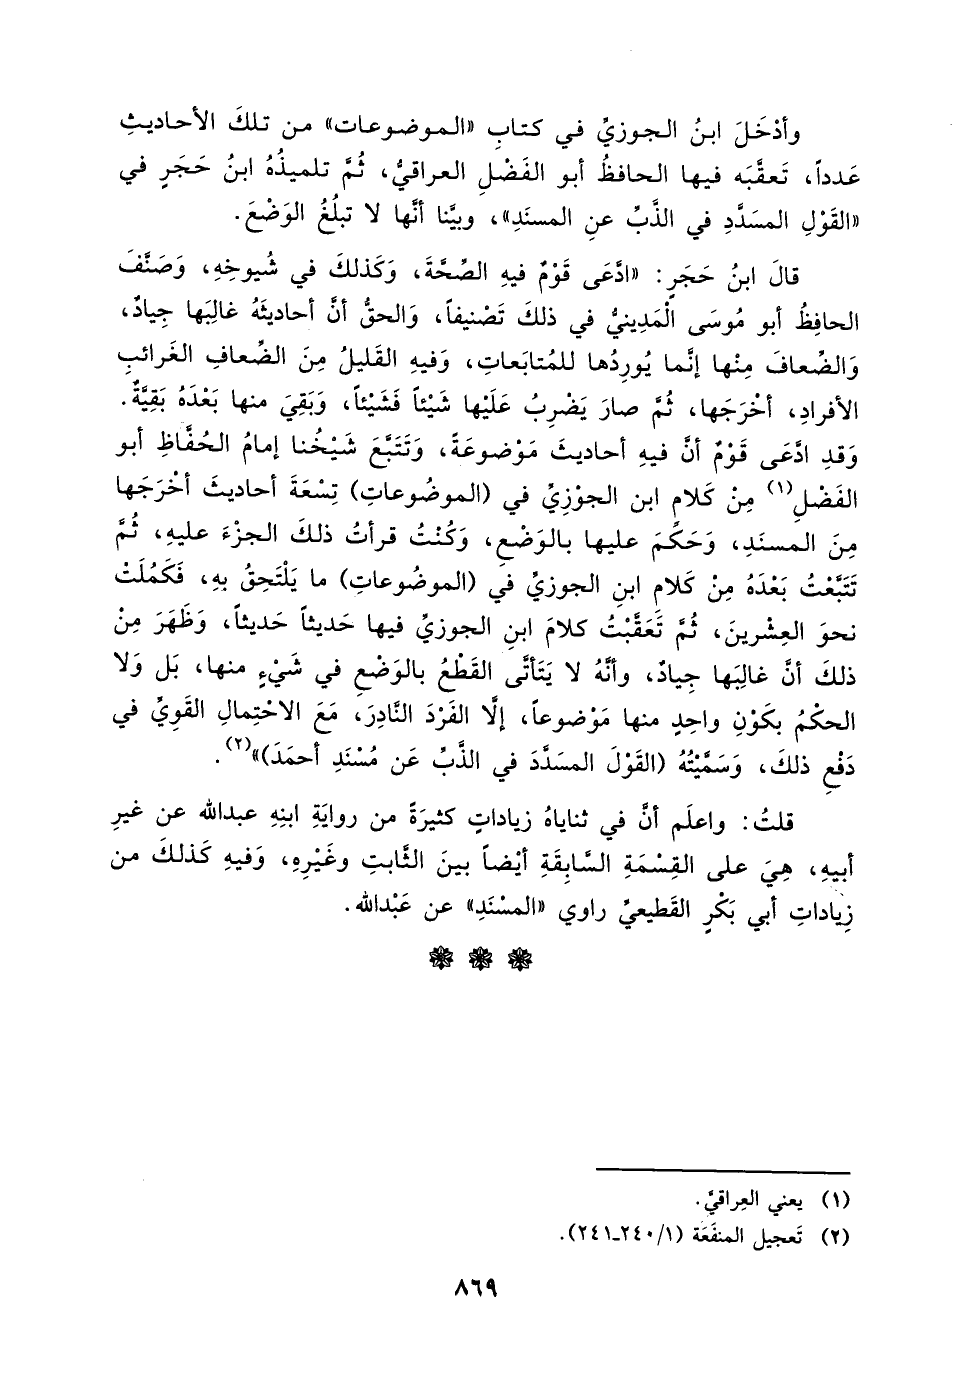 وأدْخَلَ ابنُ الجوزيِّ في كتابِ «الموضوعات» من تلكَ الأحاديثِ
عَدداً، تَعقَّبَه فيها الحافظُ أبو الفَضْلِ العراقيُّ، ثُمَّ تلميذُهُ ابنُ حَجَرٍ في
«القَوْلِ المسَدَّدِ في الذَّبِّ عنِ المسنَدِ»، وبيَّنا أنَّها لا تبلُغُ الوَضْعَ.
قالَ ابنُ حَجَرٍ: «ادَّعَى قَوْمٌ فيهِ الصِّحَّةَ، وَكَذلكَ في شُيوخِهِ، وَصَنَّفَ
الحافِظُ أبو مُوسَى الْمَدِينيُّ في ذلكَ تَصْنيفاً، وَالحقُّ أنَّ أحاديثَهُ غالبَها جِيادٌ،
وَالضِّعافَ مِنْها إنَّما يُورِدُها للمُتابَعاتِ، وَفيهِ القَليلُ مِنَ الضِّعافِ الغَرائبِ
الأفرادِ، أخْرَجَها، ثُمَّ صارَ يَضْرِبُ عَلَيْها شَيْئاً فَشَيْئاً، وَبَقِيَ منها بَعْدَهُ بَقِيَّةٌ.
وَقدِ ادَّعَى قَوْمٌ أنَّ فيه أحاديثَ مَوْضوعَةً، وَتَتَبَّعَ شَيْخُنا إمامُ الحُفَّاظِ أبو
الفَضْلِ(١) مِنْ كَلامِ ابن الجوْزِيِّ في (الموضُوعاتِ) تِسْعَةَ أحاديثَ أخْرَجَها
مِنَ المسنَدِ، وَحَكَمَ عليها بالوَضْعِ، وَكُنْتُ قرأتُ ذلكَ الجزْءَ عليهِ، ثُمَّ
تَتَبَّعْتُ بَعْدَهُ مِنْ كَلامِ ابنِ الجوزيِّ في (الموضُوعاتِ) ما يَلْتَحِقُ بهِ، فَكَمُلَتْ
نحوَ العِشْرينَ، ثُمَّ تَعَقَّبْتُ كلامَ ابنِ الجوزيِّ فيها حَديثاً حَديثاً، وَظَهَرَ مِنْ
ذلكَ أنَّ غالِبَها جِيادٌ، وأنَّهُ لا يَتَأتَّى القَطْعُ بالوَضْعِ في شَيْءٍ منها، بَل وَلا
الحكْمُ بكَوْنِ واحِدٍ منها مَوْضوعاً، إلَّا الفَرْدَ النَّادِرَ، مَعَ الاحْتِمالِ القَوِيِّ في
دَفْعِ ذلكَ، وَسَمَّيْتُهُ (القَوْلَ المسَدَّدَ في الذَّبِّ عَن مُسْنَدِ أحمَدَ)»(٢).
قلتُ: واعلَم أنَّ في ثناياهُ زياداتٍ كثيرَةً من روايَةِ ابنِهِ عبدالله عن غيرِ
أبيهِ، هِيَ على القِسْمَةِ السَّابِقَةِ أيْضاً بينَ الثَّابتِ وغَيْرِهِ، وَفيهِ كَذلكَ من
زِياداتِ أبي بَكْرٍ القَطيعيِّ راوي «المسْنَدِ» عن عَبْدالله.
(١) يعني العِراقيَّ.
(٢) تَعجيل المنفَعَة (١/ ٢٤٠-٢٤١).
٨٦٩